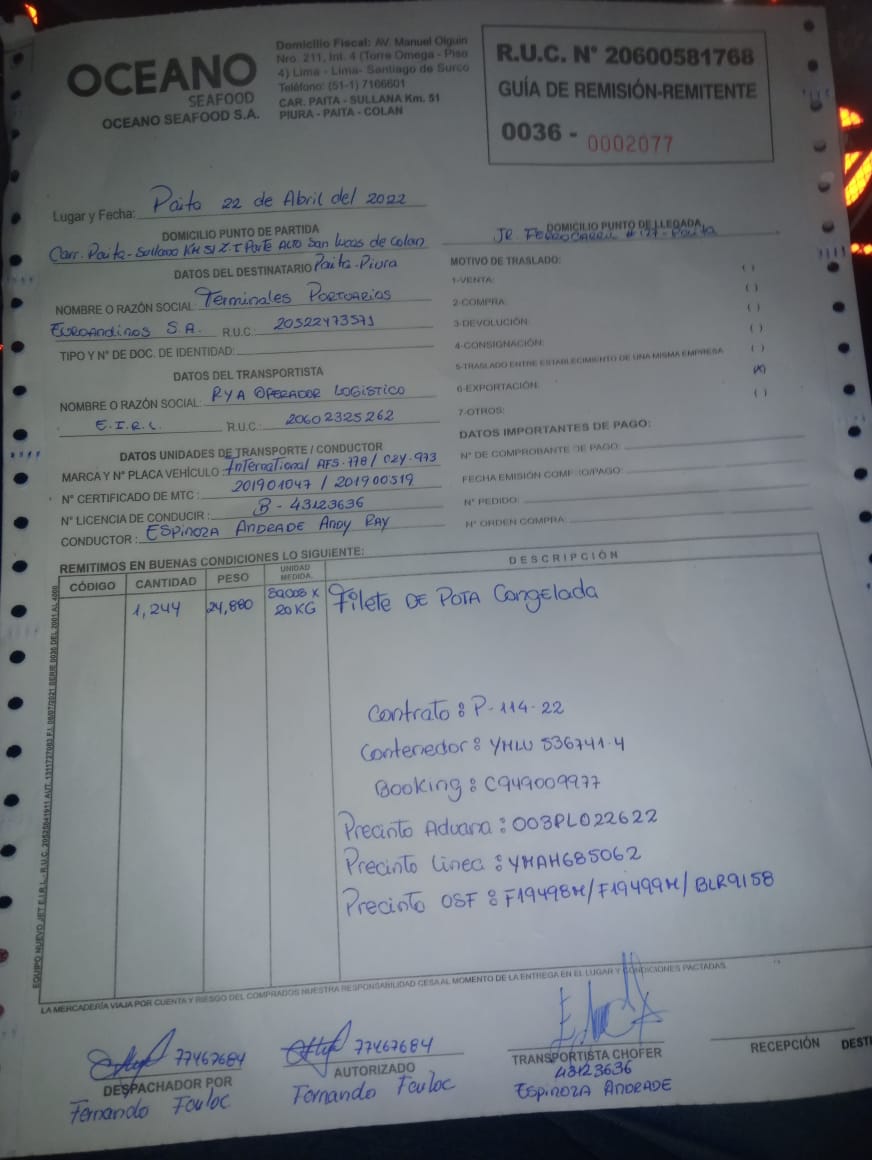 OCEANO
SEAFOOD
OCEANO SEAFOOD S.A.
Domicilio Fiscal: AV. Manuel Olguin
Nro. 211, Int. 4 (Torre Omega - Piso
4) Lima - Lima- Santiago de Surco
Teléfono: (51-1) 7166601
CAR. PAITA - SULLANA Km. 51
PIURA - PAITA - COLAN
R.U.C. N° 20600581768
GUÍA DE REMISIÓN-REMITENTE
0036 - 0002077
Lugar y Fecha: Paita 22 de Abril del 2022
DOMICILIO PUNTO DE PARTIDA
Carr. Paita-Sullana KM 51 Z.I Parte Alto San Lucas de Colan
Paita-Piura
DOMICILIO PUNTO DE LLEGADA
JR FERROCARRIL # 127-Paita
DATOS DEL DESTINATARIO
NOMBRE O RAZÓN SOCIAL: Terminales Portuarios
Euroandinos S.A. R.U.C.: 20522473571
TIPO Y N° DE DOC. DE IDENTIDAD:
DATOS DEL TRANSPORTISTA
NOMBRE O RAZÓN SOCIAL: RYA OPERADOR LOGISTICO
E.I.R.L. R.U.C.: 20602325262
DATOS UNIDADES DE TRANSPORTE / CONDUCTOR
MARCA Y N° PLACA VEHÍCULO: International AFS-778/ C2Y-973
N° CERTIFICADO DE MTC: 201901047 / 201900519
N° LICENCIA DE CONDUCIR: B-43123636
CONDUCTOR: ESPINOZA ANDRADE Andy RAY
MOTIVO DE TRASLADO:
1-VENTA: ( )
2-COMPRA: ( )
3-DEVOLUCIÓN: ( )
4-CONSIGNACIÓN: ( )
5-TRASLADO ENTRE ESTABLECIMIENTO DE UNA MISMA EMPRESA ( )
6-EXPORTACIÓN: (X)
7-OTROS: ( )
DATOS IMPORTANTES DE PAGO:
N° DE COMPROBANTE DE PAGO:
FECHA EMISIÓN COMP. /PAGO:
N° PEDIDO:
N° ORDEN COMPRA:
REMITIMOS EN BUENAS CONDICIONES LO SIGUIENTE:
CÓDIGO CANTIDAD PESO UNIDAD MEDIDA DESCRIPCIÓN
1,244 24,880 SACOS X 20KG Filete DE POTA Congelada
Contrato: P-114-22
Contenedor: YMLU 536741-4
Booking: C949009977
Precinto Aduana: 003PL022622
Precinto Linea: YMAH685062
Precinto OSF: F19498M/F19499M/BLR9158
EQUIPO NUEVO JET E.I.R.L. - R.U.C. 20525841911 AUT. 13117227063 F.I. 08/07/2021 SERIE 0036 DEL 2001 AL 4000
LA MERCADERÍA VIAJA POR CUENTA Y RIESGO DEL COMPRADOS NUESTRA RESPONSABILIDAD CESA AL MOMENTO DE LA ENTREGA EN EL LUGAR Y CONDICIONES PACTADAS.
77467684
DESPACHADOR POR
Fernando Fouloc
77467684
AUTORIZADO
Fernando Fouloc
TRANSPORTISTA CHOFER
43123636
ESPINOZA ANDRADE
RECEPCIÓN